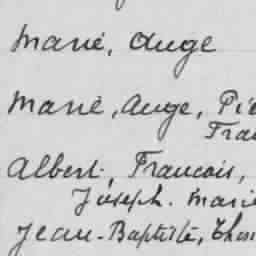 Marie, Ange
Marie, Ange, Pie
Fra
Albert, Francois,
Joseph. Marie
Jean-Baptiste, Ths